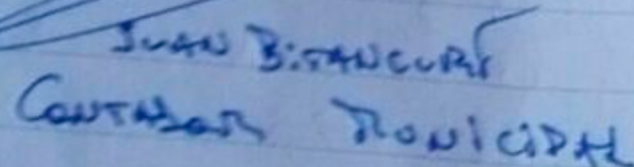 JUAN BITANCURT
CONTADOR MUNICIPAL